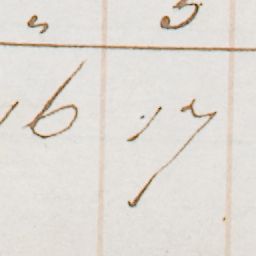 " 5
16 17